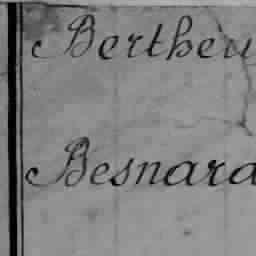 Bertheu
Besnard